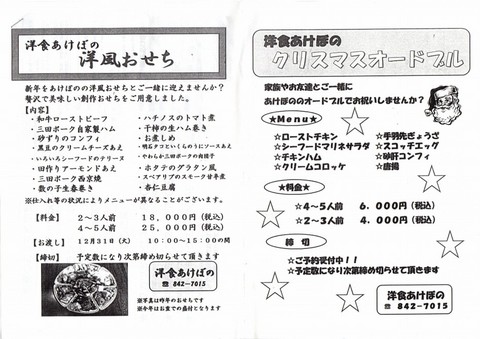 洋食あけぼの
洋風おせち
新年をあけぼのの洋風おせちとご一緒に迎えませんか?
贅沢で美味しい創作おせちをご用意しました。
【内容】
・和牛ローストビーフ
・三田ポーク自家製ハム
・砂ずりのコンフィ
・黒豆のクリームチーズあえ
・いろいろシーフードのテリーヌ
・田作りアーモンドあえ
・三田ポーク西京焼
・数の子生春巻き
・ハチノスのトマト煮
・干柿の生ハム巻き
・お煮しめ
・明石タコといくらのうにソースあえ
・やわらか三田ポークの肉団子
・ホタテのグラタン風
・スペアリブのスモーク甘辛煮
・杏仁豆腐
※仕入れ等の状況によりメニューが異なることがございます。
【料金】 2～3人前 18,000円(税込)
4～5人前 25,000円(税込)
【お渡し】 12月31日(火) 10:00～15:00の間
【締切】 予定数になり次第締め切らせて頂きます
洋食あけぼの
☎ 842-7015
※写真は昨年のおせちです
※今年はお重での盛付となります
洋食あけぼの
クリスマスオードブル
家族やお友達とご一緒に
あけぼののオードブルでお祝いしませんか?
☆Menu☆
☆ローストチキン
☆シーフードマリネサラダ
☆チキンハム
☆クリームコロッケ
☆手羽先ぎょうざ
☆スコッチエッグ
☆砂肝コンフィ
☆唐揚
☆料金☆
☆4～5人前 6,000円(税込)
☆2～3人前 4,000円(税込)
締 切
☆ご予約受付中!!
☆予定数になり次第締め切らせて頂きます
洋食あけぼの
☎ 842-7015